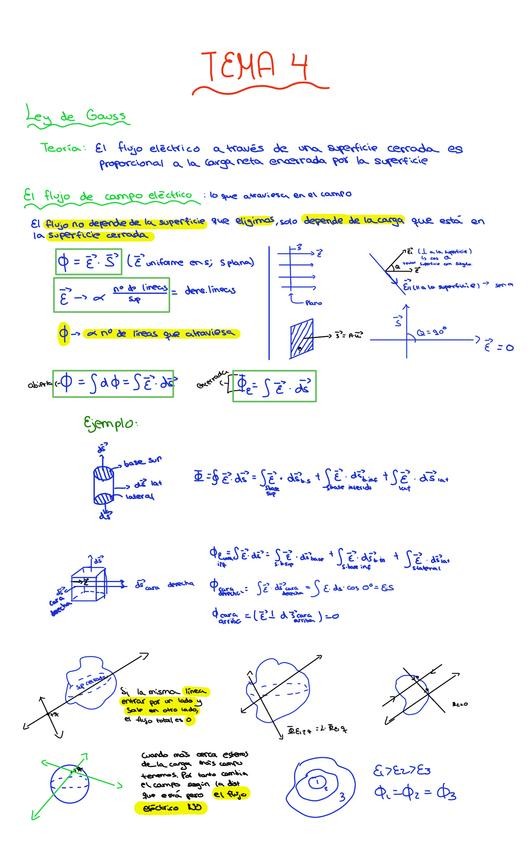 TEMA 4
Ley de Gauss
Teoría: El flujo eléctrico a través de una superficie cerrada es
proporcional a la carga neta encerrada por la superficie
El flujo de campo eléctrico: lo que atraviesa en el campo
El flujo no depende de la superficie que eligimos, solo depende de la carga que está en
la superficie cerrada
Φ = E⃗ · S⃗ (E⃗ uniforme en s; s plana)
E⃗ → α nº de líneas / sup = dens. líneas
Φ → α nº de líneas que atraviesa
S⃗
E⃗
Plano
(⊥ a la superficie)
(∥ a la superficie)
S⃗
α=90°
E⃗ = 0
abierta Φ = ∫dΦ = ∫E⃗ · ds⃗
cerrada Φ_E = ∫E⃗ · ds⃗
Ejemplo:
ds⃗
base sup
ds⃗ lat
lateral
ds⃗
Φ = ∮E⃗ · ds⃗ = ∫ E⃗ · ds⃗ + ∫ E⃗ · ds⃗ + ∫ E⃗ · ds⃗ lat
base sup
lat
ds⃗
E⃗
cara derecha
ds⃗ cara derecha
Φ = ∫E⃗ · ds⃗ = ∫ E⃗ · ds⃗ base + ∫ E⃗ · ds⃗ + ∫ E⃗ · ds⃗ lat
s.base inf
s lateral
Φ cara derecha = ∫ E⃗ ds⃗ cara derecha = ∫ E · ds · cos 0° = ES
Φ cara arriba = (E⃗ ⊥ ds⃗ cara arriba) = 0
Si la misma línea
entrar por un lado y
sale en otro lado,
el flujo total es 0
Cuando más cerca estemos
de la carga más campo
tenemos. Por tanto cambia
el campo según la dist
que está pero el flujo
eléctrico NO
1
2
3
E₁>E₂>E₃
Φ₁=Φ₂=Φ₃